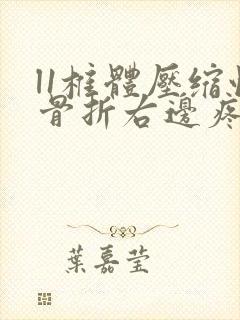 11椎體壓縮
骨折右邊疼
葉嘉莹